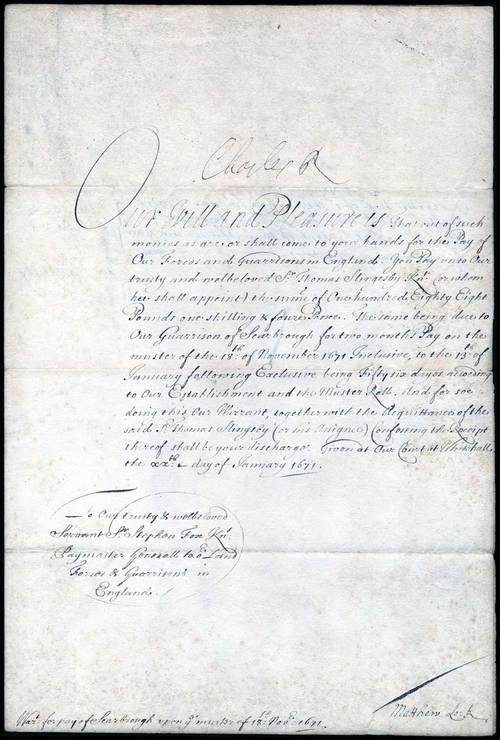 Charles R
Our Will and Pleasure is that out of such
monies as are or shall come to your hands for the Pay of
Our Forces and Guarrisons in England. You Pay unto Our
trusty and welbeloved Sr. Thomas Slingesby Knt. (or whom
hee shall appoint) the sume of One hundred Eighty Eight
Pounds one shilling & foure Pence. The same being due to
Our Guarrison of Scarbrough for two months Pay on the
muster of the 18th. of November 1671 Inclusive, to the 13th. of
January following Exclusive being Fifty six dayes according
to Our Establishment and the Muster Roll. And for soe
doing this Our Warrant, together with the Acquittance of the
said Sr. Thomas Slingsby (or his Assignes) Confessing the Receipt
thereof shall be your discharge. Given at Our Court at Whitehall
the xxth. day of January 1671.
To Our trusty & welbeloved
Servant Sr. Stephen Fox Knt.
Paymaster Generall to Land
Forces & Guarrisons in
England.
Matthew Lock
Wart. for pay of Scarbrough upon ye muster of 18th. Novr. 1671.